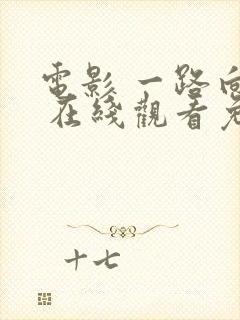 電影 一路向
在綫觀看
十七